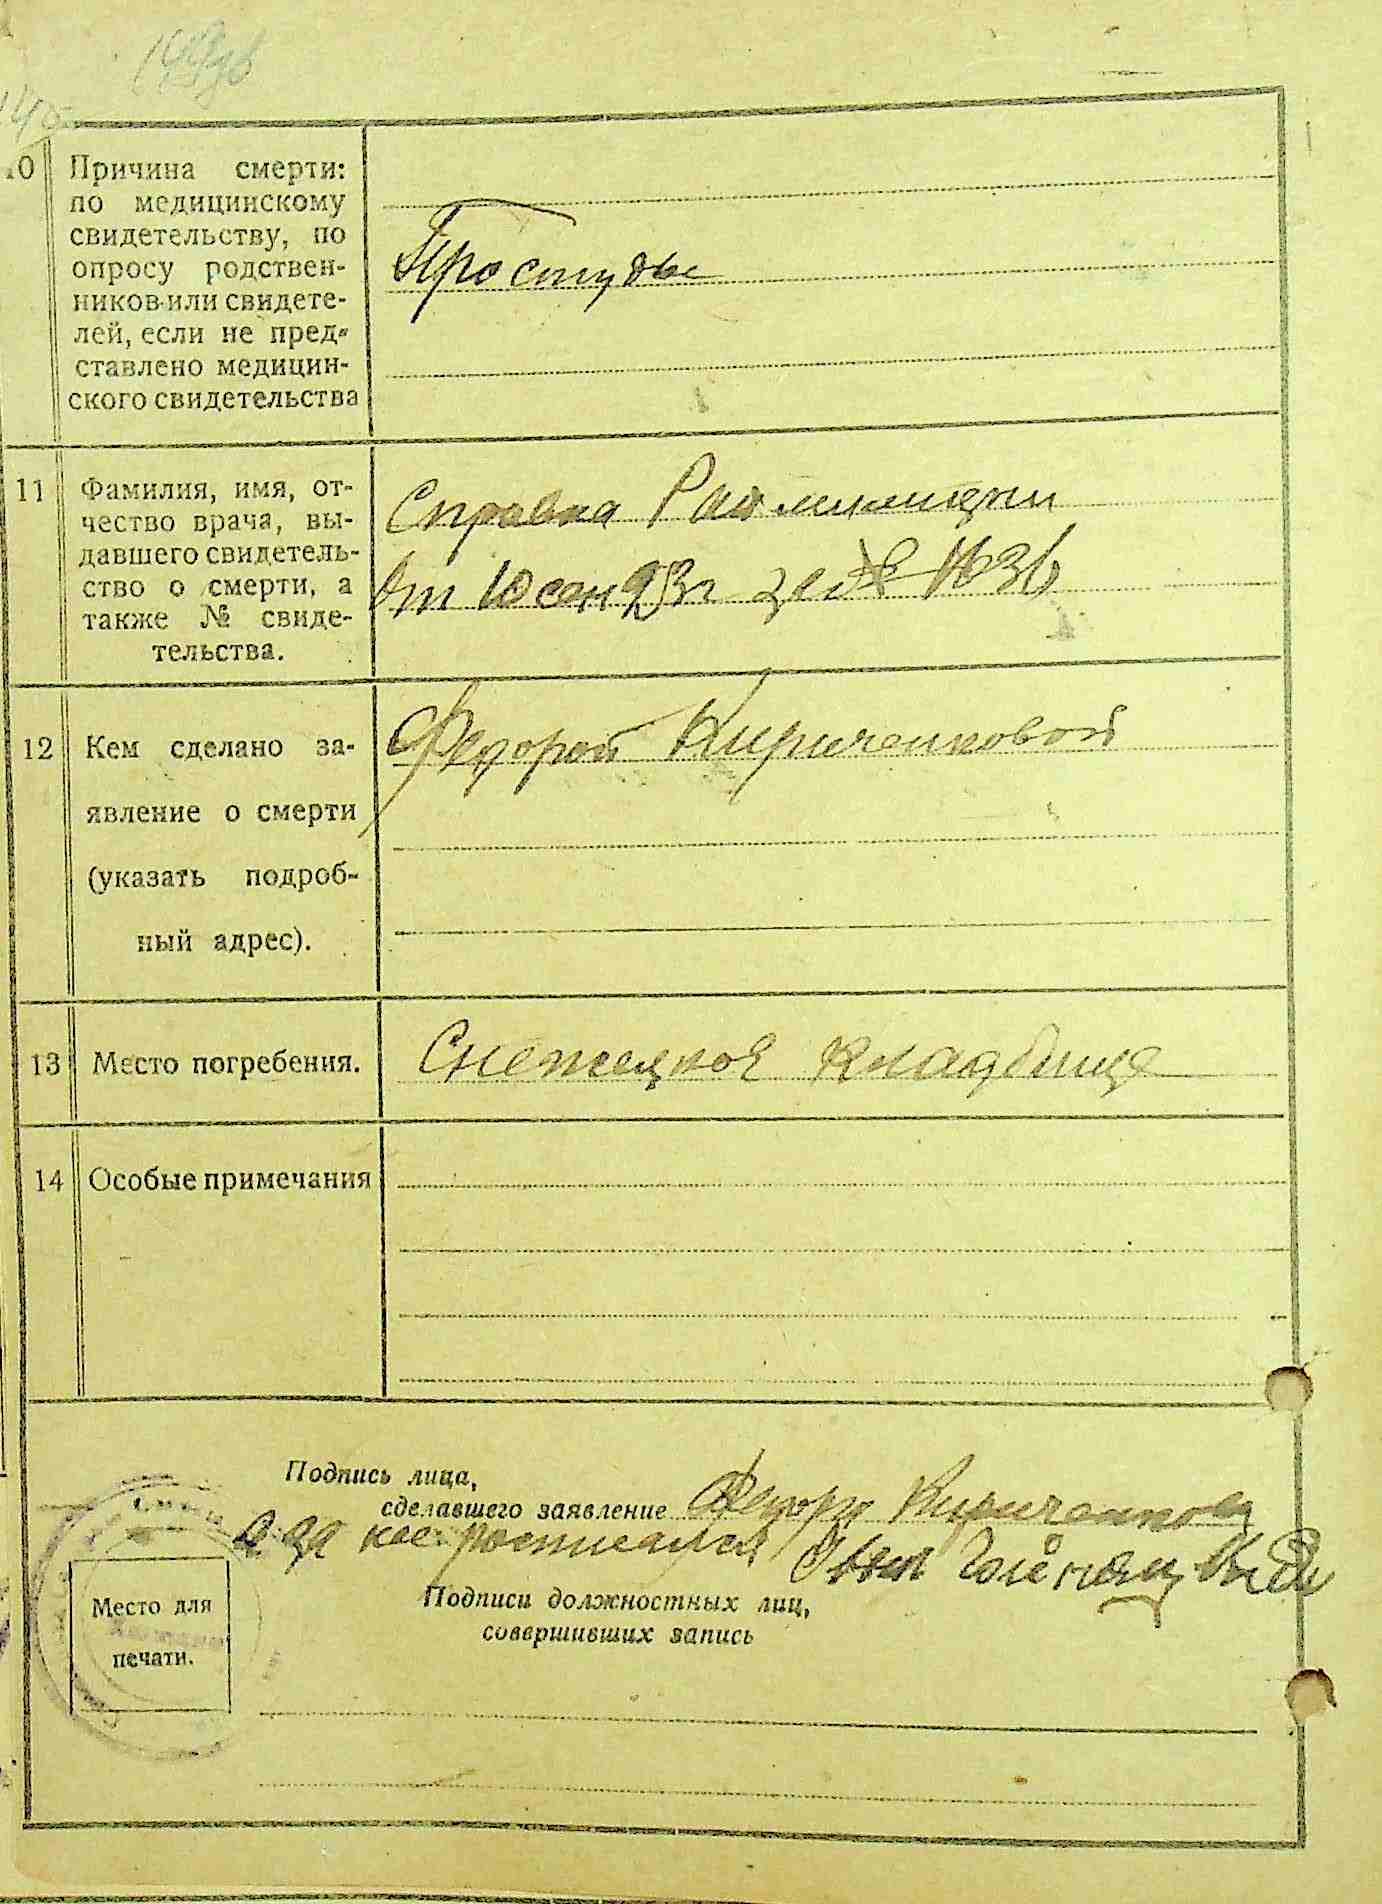 10 Причина смерти:
по медицинскому
свидетельству, по
опросу родствен-
ников или свидете-
лей, если не пред-
ставлено медицин-
ского свидетельства
Простуды
11 Фамилия, имя, от-
чество врача, вы-
давшего свидетель-
ство о смерти, а
также № свиде-
тельства.
Справка Рай милиции
От 10 сен 93г № 36
12 Кем сделано за-
явление о смерти
(указать подроб-
ный адрес).
Федорой Кириченковой
13 Место погребения.
кладбище
14 Особые примечания
Подпись лица,
сделавшего заявление Федора Кириченкова
а за нее росписался
Подписи должностных лиц,
совершивших запись
Место для
печати.